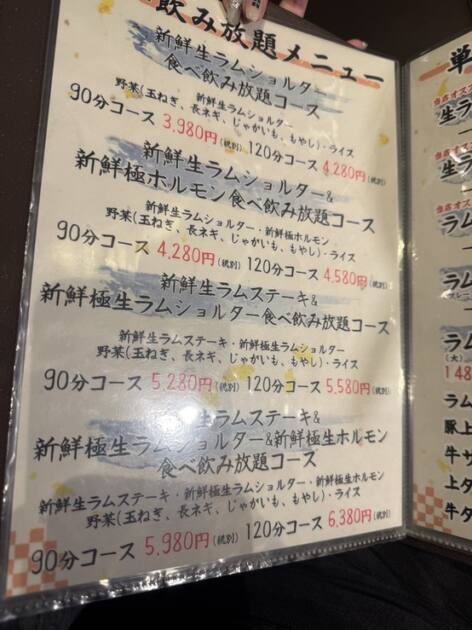 飲み放題メニュー
新鮮生ラムショルター
食べ飲み放題コース
新鮮生ラムショルター
野菜(玉ねぎ、長ネギ、じゃがいも、もやし)・ライス
90分コース 3,980円(税別) 120分コース 4,280円(税別)
新鮮生ラムショルター&
新鮮極ホルモン食べ飲み放題コース
新鮮生ラムショルター・新鮮極ホルモン
野菜(玉ねぎ、長ネギ、じゃがいも、もやし)・ライス
90分コース 4,280円(税別) 120分コース 4,580円(税別)
新鮮生ラムステーキ&
新鮮極生ラムショルター食べ飲み放題コース
新鮮生ラムステーキ・新鮮極生ラムショルター
野菜(玉ねぎ、長ネギ、じゃがいも、もやし)・ライス
90分コース 5,280円(税別) 120分コース 5,580円(税別)
生ラムステーキ&
新鮮極生ラムショルター&新鮮極生ホルモン
食べ飲み放題コース
新鮮生ラムステーキ・新鮮極生ラムショルター・新鮮極生ホルモン
野菜(玉ねぎ、長ネギ、じゃがいも、もやし)・ライス
90分コース 5,980円(税別) 120分コース 6,380円(税別)
単
当店オス
生ラ
当店オス
生ラ
ラム
ラム
ラム
(大)
148
ラム
豚上
牛サ
上タ
牛タ